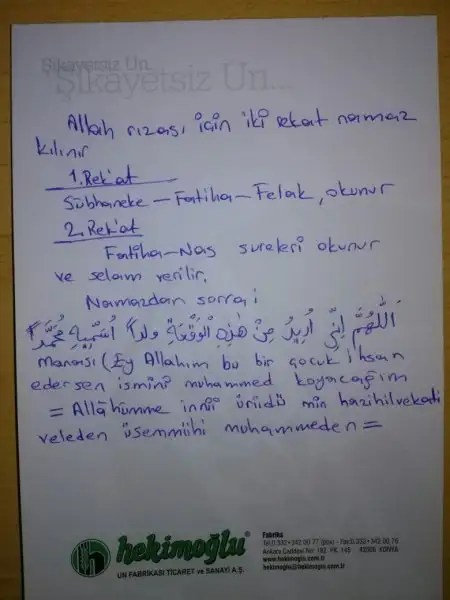 Şikayetsiz Un...
Şikayetsiz Un...
Allah rızası için iki rekat namaz
kılınır
1. Rek'at
Sübhaneke – Fatiha – Felak, okunur
2. Rek'at
Fatiha – Nas sureleri okunur
ve selam verilir.
Namazdan sonra;
اَللّٰهُمَّ اِنِّي اُرِيدُ مِنْ هٰذِهِ الْوَقْعَةِ وَلَداً اُسَمِّيهِ مُحَمَّداً
Manası (Ey Allahım bu bir çocuk ihsan
edersen ismini muhammed koyacağım
= Allâhümme innî ürîdü min hazihilvekati
veleden üsemmîhi muhammeden =
hekimoğlu
UN FABRİKASI TİCARET ve SANAYİ A.Ş.
Fabrika
Tel: 0.332 • 342 00 77 (pbx) - Fax: 0.332 • 342 00 76
Ankara Caddesi No: 182 PK. 145 42005 KONYA
www.hekimoglu.com.tr
hekimoglu@hekimoglu.com.tr